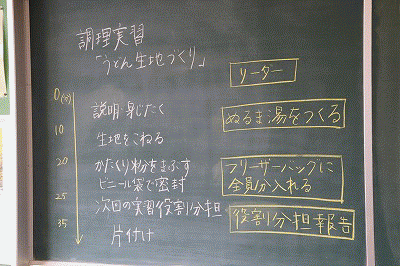 調理実習
「うどん生地づくり」
リーダー
0(分)
説明・身じたく
ぬるま湯をつくる
10
生地をこねる
20
かたくり粉をまぶす
ビニール袋で密封
フリーザーバッグに
全員分入れる
25
次回の実習役割分担
役割分担報告
35
片付け